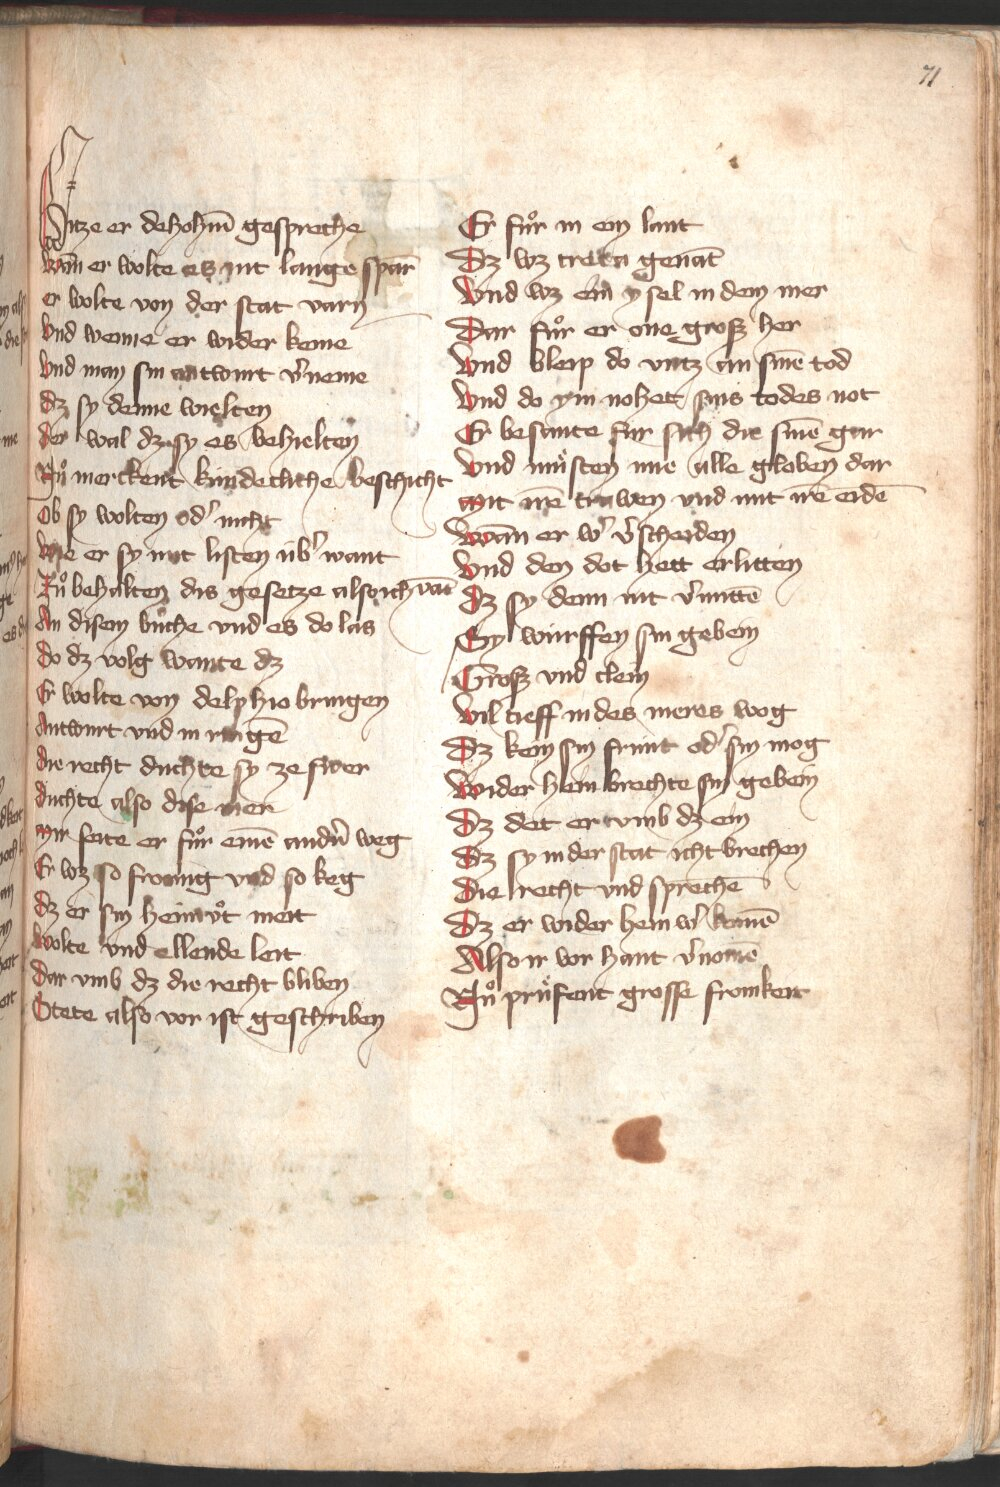 71
Vntze er de hohim̄ gespreche
Wan̄ er wolte es nit lange spar̄
er wolte von der stat varn
Vnd wenne er wider keme
Vnd man sin antwurt v͛neme
Dz sy denne wielten
Der wal dz sy es behielten
Nů merckent kündecliche beschicht
Ob sy wolten od͛ nicht
Wie er sy mit listen úb͛want
Zů behalten dis gesetze also ich vāt
An disem bůche vnd es do las
Do dz volg wante dz
Er wolte von delphio bringen
Antwurt vnd in ringē
Die recht duchte sy ze swer
Duchte also dise mer
Mir seite er fůr einē andn̄ weg
Er wz so fromig vnd so keg
Dz er sin heimůt meit
Wolte vnd ellende leit
Dar vmb dz die recht bliben
Stete also vor ist geschriben
Er fůr in ein lant
Dz wz creta genāt
Vnd wz ein ysel in dem mer
Dar fůr er one grosz her
Vnd bleip do vntz an sinē tod
Vnd do ym nohet sins todes not
Er besante für sich die sinē gar
Vnd můsten ime alle globen dar
Mit irē truwen vnd mit irē eidē
Wan̄ er w͛ v͛scheiden
Vnd den dot hett erlitten
Dz sy denn nit v͛mittē
Sy würffen sin gebein
Grosz vnd clein
Vil tieff in des meres wog
Dz kein sin frúnt od͛ sin mog
Wider hein brechte sin gebein
Dz det er vmb dz ein
Dz sy in der stat icht brechen
Die recht vnd sprechē
Dz er wider hein w͛ komē
Also ir vor hant v͛nomē
Nů prüfent grosse fromkeit